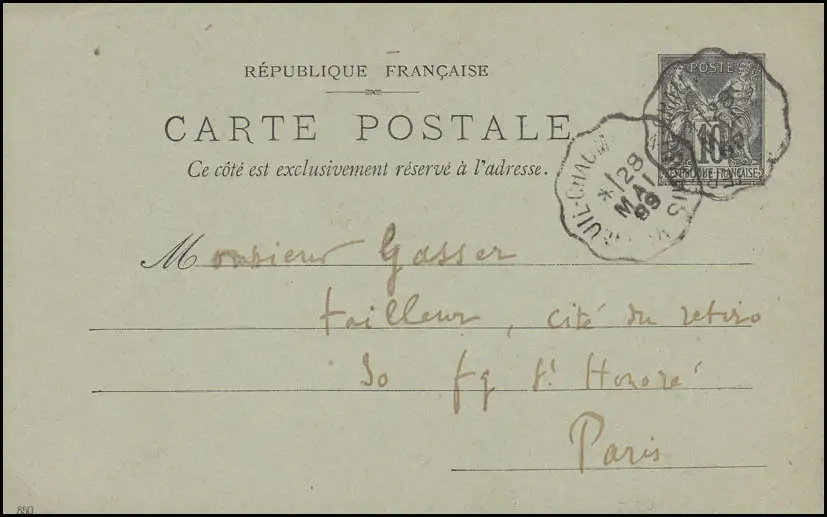 RÉPUBLIQUE FRANÇAISE
CARTE POSTALE
Ce côté est exclusivement réservé à l'adresse.
POSTE
10
REPUBLIQUE FRANÇAISE
28
MAI
99
Monsieur Gasser
tailleur, cité du retiro
30 fg St Honoré
Paris
850